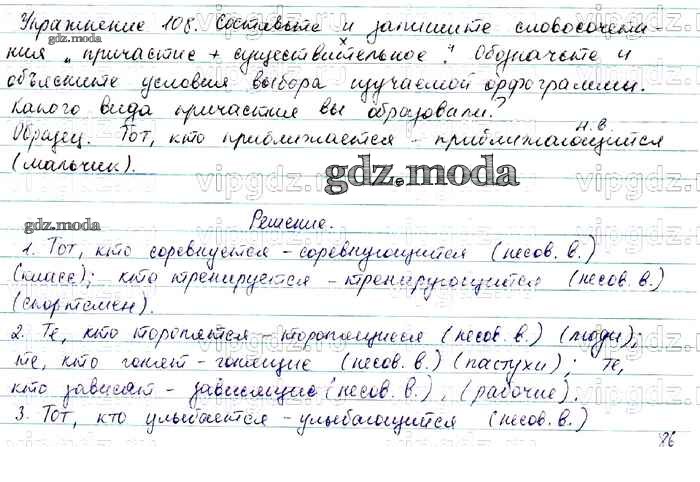 Упражнение 108. Составьте и запишите словосочета-
ния „причастие + существительное". Обозначьте и
объясните условия выбора изучаемой орфограммы.
Какого вида причастия вы образовали?
н.в.
Образец. Тот, кто приближается - приближающийся
(мальчик).
gdz.moda
gdz.moda
gdz.moda
Решение.
1. Тот, кто соревнуется - соревнующийся (несов. в.)
(класс); кто тренируется - тренирующийся (несов. в.)
(спортсмен).
2. Те, кто торопятся торопящиеся (несов. в.) (люди);
те, кто гонят - гонящие (несов. в.) (пастухи); Те,
кто зависят - зависящие (несов. в.), (рабочие).
3. Тот, кто улыбается - улыбающийся (несов. в.)
86